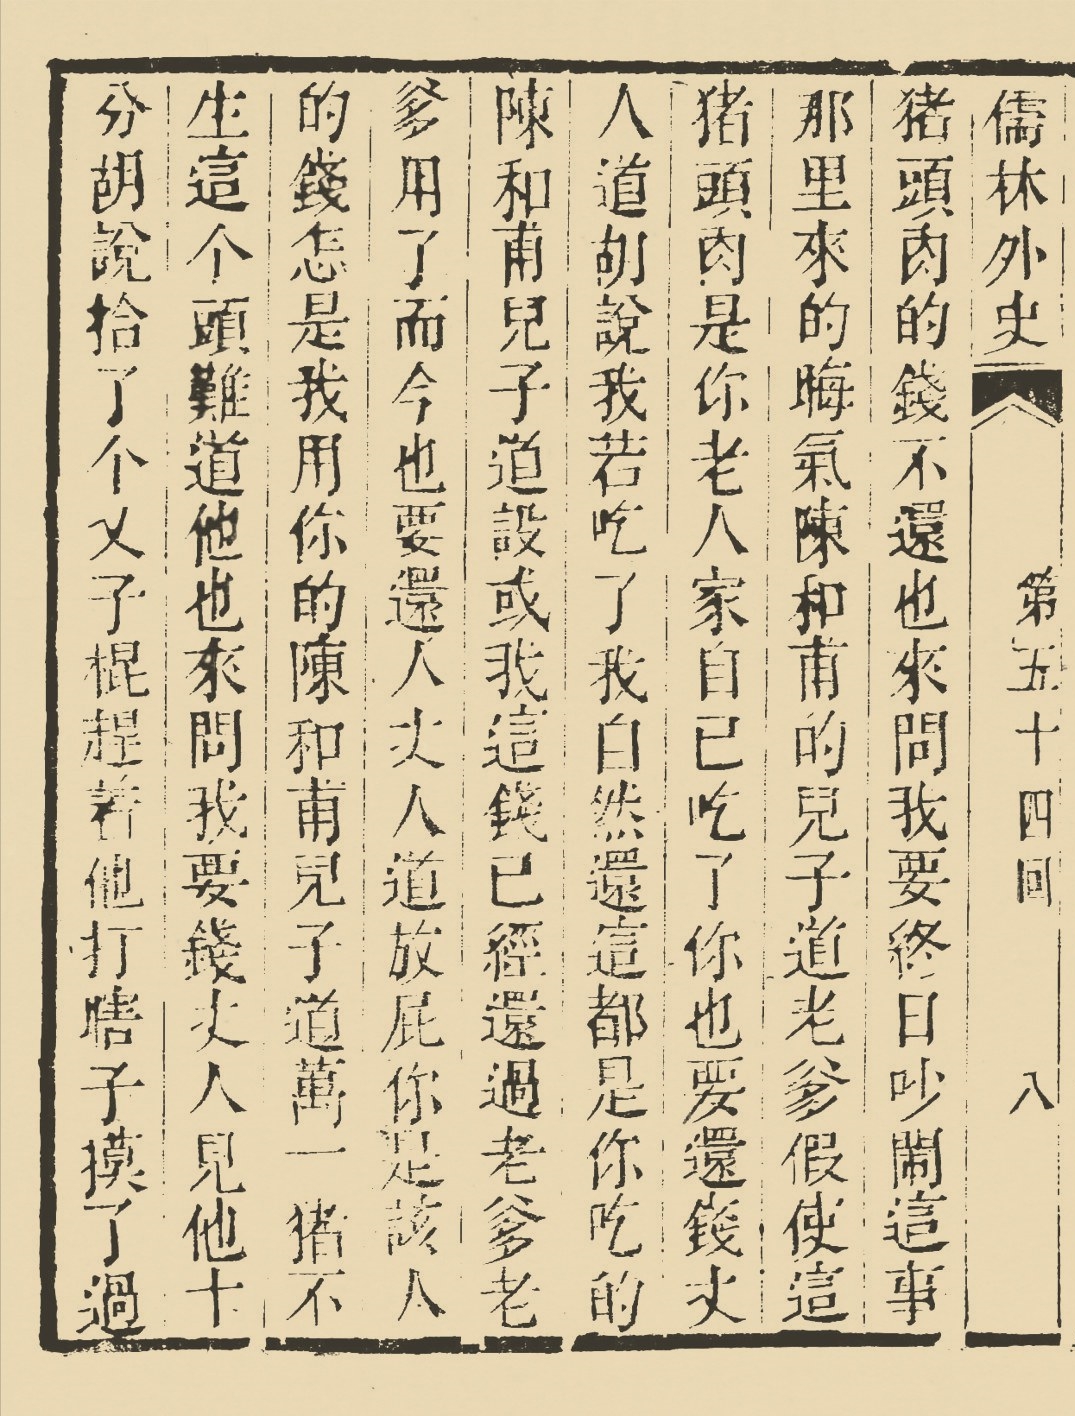 儒林外史 第五十四回 八
猪頭肉的錢不還也來問我要終日吵鬧這事
那里來的晦氣陳和甫的兒子道老爹假使這
猪頭肉是你老人家自已吃了你也要還錢丈
人道胡說我若吃了我自然還這都是你吃的
陳和甫兒子道設或我這錢已經還過老爹老
爹用了而今也要還人丈人道放屁你是該人
的錢怎是我用你的陳和甫兒子道萬一猪不
生這个頭難道他也來問我要錢丈人見他十
分胡說拾了个乂子棍趕着他打瞎子摸了過